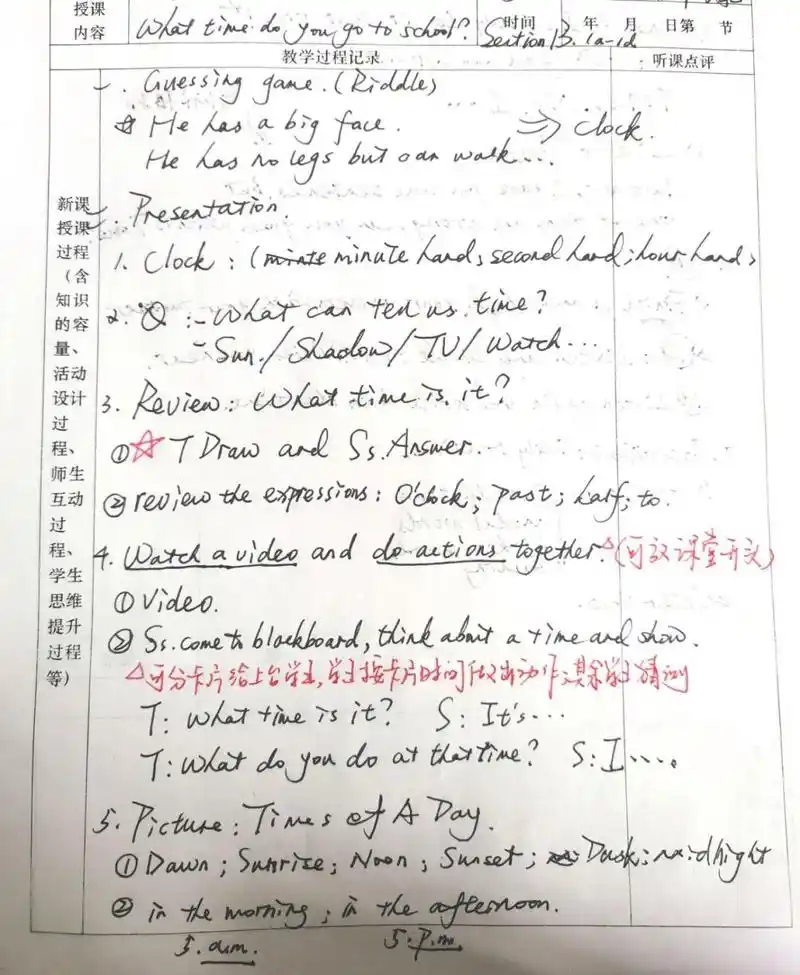 授课内容
What time do you go to school?
时间 年 月 日第 节
Section B. 1a-1d
教学过程记录
听课点评
新课授课过程(含知识的容量、活动设计过程、师生互动过程、学生思维提升过程等)
一. Guessing game. (Riddle)
He has a big face. ⇒ clock.
He has no legs but can walk...
二. Presentation.
1. Clock: (minute hand; second hand; hour hand)
2. Q: - What can tell us time?
- Sun/Shadow/TV/Watch...
3. Review: What time is it?
① ☆ T Draw and Ss. Answer.
② review the expressions: O'clock; past; half; to.
4. Watch a video and do actions together. △(可放课堂开头)
① Video.
② Ss. come to blackboard, think about a time and show.
△可分卡片给上台学生,学生按卡片时间做出动作,其余学生猜测
T: What time is it? S: It's...
T: What do you do at that time? S: I....
5. Picture: Times of A Day.
① Dawn; Sunrise; Noon; Sunset; Dusk; midnight
② in the morning; in the afternoon.
5. a.m. 5. p.m.